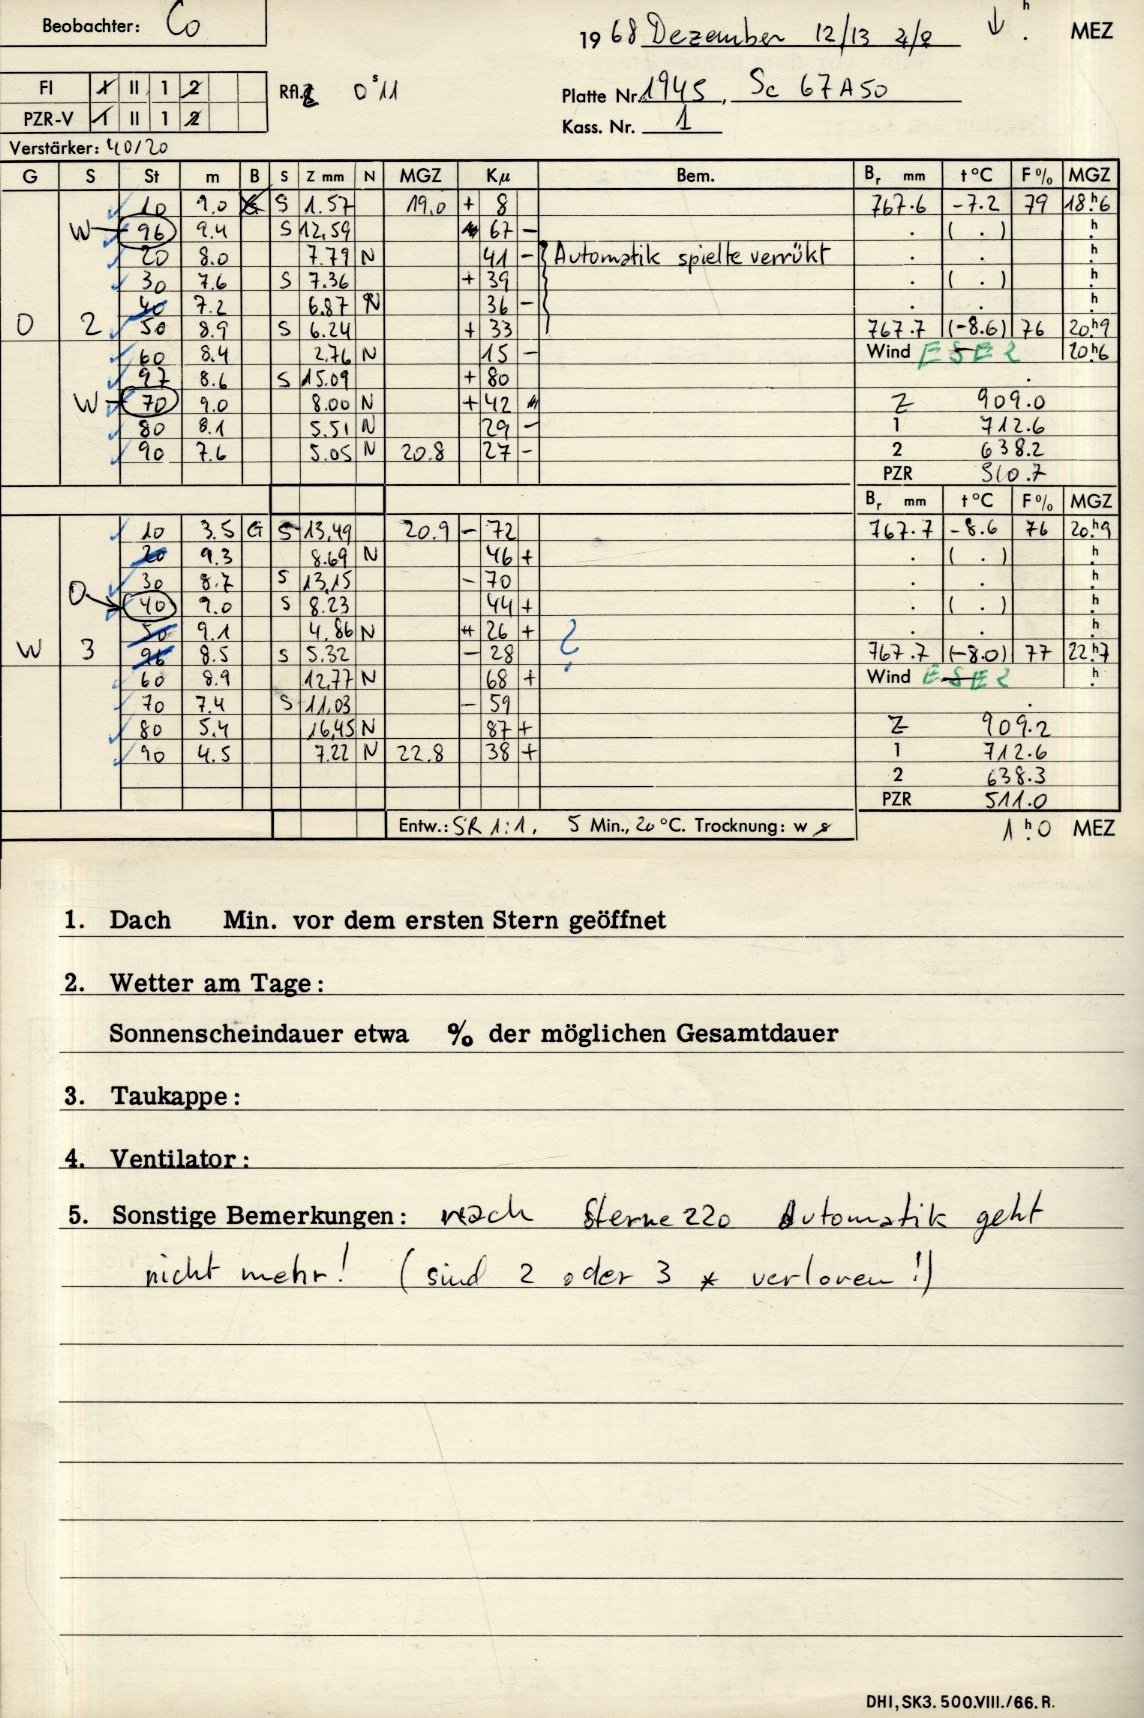 Beobachter: Co
1968 Dezember 12/13 h MEZ
FI I II 1 2
Rfl. 0ˢ11
Platte Nr. 1945, Sc 67A50
PZR-V I II 1 2
Kass. Nr. 1
Verstärker: 40/20
G S St m B S Z mm N MGZ Kµ Bem. Bᵣ mm t °C F % MGZ
10 9.0 S 1.57 19.0 + 8 767.6 -7.2 79 18ʰ6
W 96 9.4 S 12,59 67 - ( . ) h
20 8.0 7.79 N 41 - Automatik spielte verrükt h
30 7.6 S 7.36 + 39 ( . ) h
40 7.2 6.87 N 36 - h
O 2 50 8.9 S 6.24 + 33 767.7 (-8.6) 76 20ʰ9
60 8.4 2,76 N 15 - Wind ESE 2 20ʰ6
97 8.6 S 15.09 + 80
W 70 9.0 8.00 N + 42 Z 909.0
80 8.1 5.51 N 29 - 1 712.6
90 7.6 5.05 N 20.8 27 - 2 638.2
PZR 510.7
Bᵣ mm t °C F % MGZ
10 3.5 G S 13,49 20.9 - 72 767.7 -8.6 76 20ʰ9
20 9.3 8.69 N 46 + ( . ) h
30 8.7 S 13,15 - 70 h
O 40 9.0 S 8.23 44 + ( . ) h
50 9.1 4,86 N 26 + ? h
W 3 96 8.5 S 5.32 - 28 767.7 (-8.0) 77 22ʰ7
60 8.9 12,77 N 68 + Wind ESE 2 h
70 7.4 S 11,03 - 59
80 5.4 16,45 N 87 + Z 909.2
90 4.5 7.22 N 22.8 38 + 1 712.6
2 638.3
PZR 511.0
Entw.: SR 1:1, 5 Min., 20 °C. Trocknung: w 1ʰ0 MEZ
1. Dach Min. vor dem ersten Stern geöffnet
2. Wetter am Tage:
Sonnenscheindauer etwa % der möglichen Gesamtdauer
3. Taukappe:
4. Ventilator:
5. Sonstige Bemerkungen: nach Sterne 220 Automatik geht
nicht mehr! (sind 2 oder 3 * verloren!)
DHI, SK3. 500.VIII./66. R.